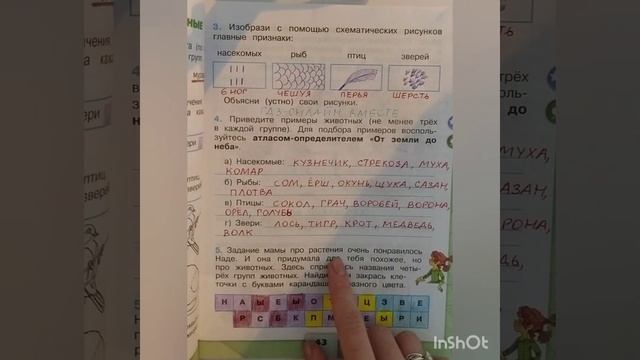 3. Изобрази с помощью схематических рисунков
главные признаки:
насекомых рыб птиц зверей
6 НОГ ЧЕШУЯ ПЕРЬЯ ШЕРСТЬ
Объясни (устно) свои рисунки.
4. Приведите примеры животных (не менее трёх
в каждой группе). Для подбора примеров восполь-
зуйтесь атласом-определителем «От земли до
неба».
а) Насекомые: КУЗНЕЧИК, СТРЕКОЗА, МУХА,
КОМАР
б) Рыбы: СОМ, ЁРШ, ОКУНЬ, ЩУКА, САЗАН,
ПЛОТВА
в) Птицы: СОКОЛ, ГРАЧ, ВОРОБЕЙ, ВОРОНА,
ОРЕЛ, ГОЛУБЬ
г) Звери: ЛОСЬ, ТИГР, КРОТ, МЕДВЕДЬ,
ВОЛК
5. Задание мамы про растения очень понравилось
Наде. И она придумала для тебя похожее, но
про животных. Здесь названия четы-
рёх групп животных. закрась кле-
точки с буквами разного цвета.
Н А Ы Е Ы О Ц З В Е
Р С Б К П М Е Ы Р И
43
InShOt